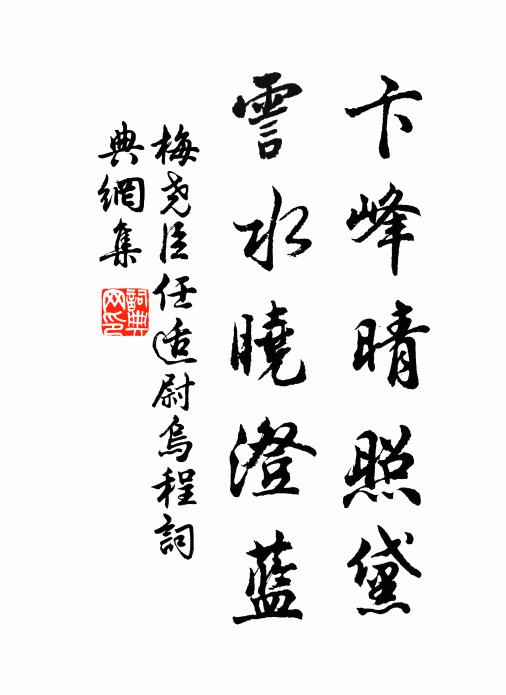 卞峰晴照黛
霅水曉澄藍
梅堯臣任适尉烏程詞
典網集
詞典
网印